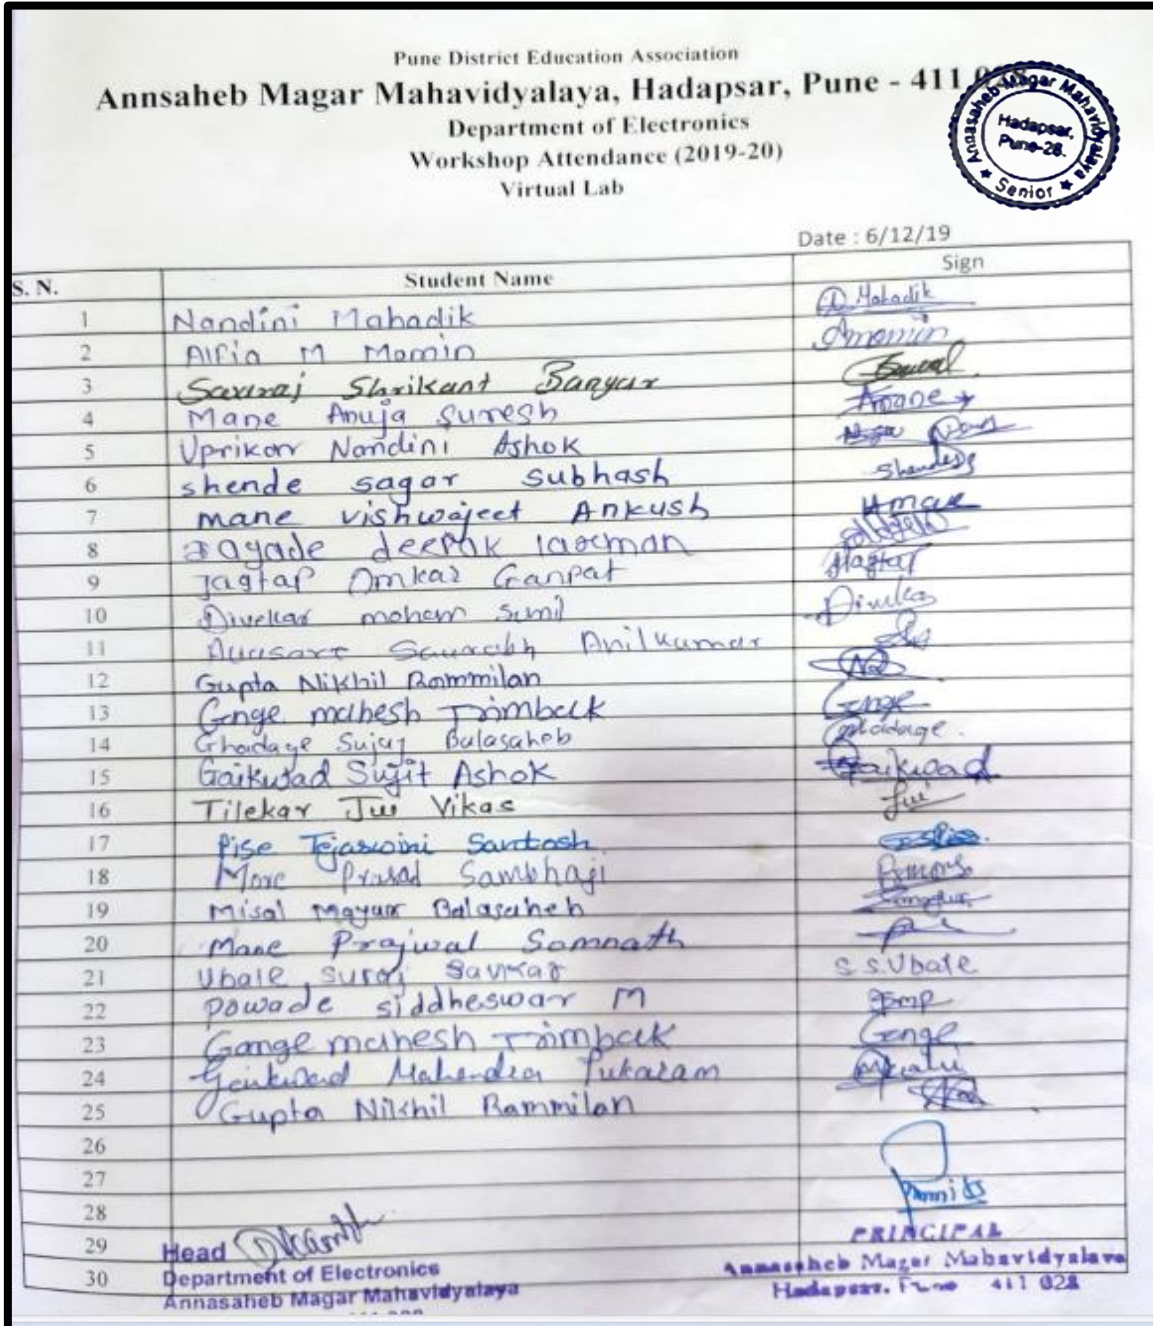 Pune District Education Association
Annsaheb Magar Mahavidyalaya, Hadapsar, Pune - 411 028
Annasaheb Magar Mahavidyalaya
Hadapsar,
Pune-28.
★ Senior ★
Department of Electronics
Workshop Attendance (2019-20)
Virtual Lab
Date : 6/12/19
S. N. Student Name Sign
1 Nandini Mahadik Mahadik
2 Alfia M Momin Amomin
3 Shrikant Bangar
4 Mane Anuja Suresh Amane
5 Uprikar Nandini Ashok
6 shende sagar subhash Shendess
7 mane vishwajeet Ankush
8 deepak laxman
9 Jagtap Omkar Ganpat Jagtap
10 Divekar mohan Sunil Divekar
11 Saurabh Anilkumar
12 Gupta Nikhil Rammilan
13 Genge mahesh Trimbak Genge
14 Ghadage Balasaheb Ghadage.
15 Gaikwad Sujit Ashok Gaikwad
16 Tilekar Jui Vikas Jui
17 Pise Tejaswini Santosh
18 More Prasad Sambhaji
19 Misal Mayur Balasaheb
20 Mane Prajwal Somnath
21 Ubale suraj S.S.Ubale
22 powade siddheswar M
23 Gange mahesh Trimbak Genge
24 Gaikwad Mahendra Tukaram
25 Gupta Nikhil Rammilan
26
27
28
29 Head PRINCIPAL
30 Department of Electronics Annasaheb Magar Mahavidyalaya
Annasaheb Magar Mahavidyalaya Hadapsar, Pune 411 028